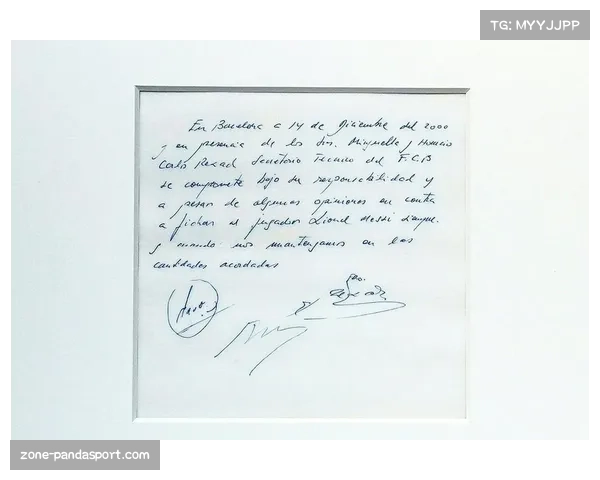 TG: MYYJJPP
En Barcelona a 14 de Diciembre del 2000
y en presencia de los Srs. Minguella y Horacio
Carlos Rexach Secretario Técnico del F.C.B
se compromete bajo su responsabilidad y
a pesar de algunas opiniones en contra
a fichar al jugador Lionel Messi siempre
y cuando nos mantengamos en las
cantidades acordadas
zone-pandasport.com